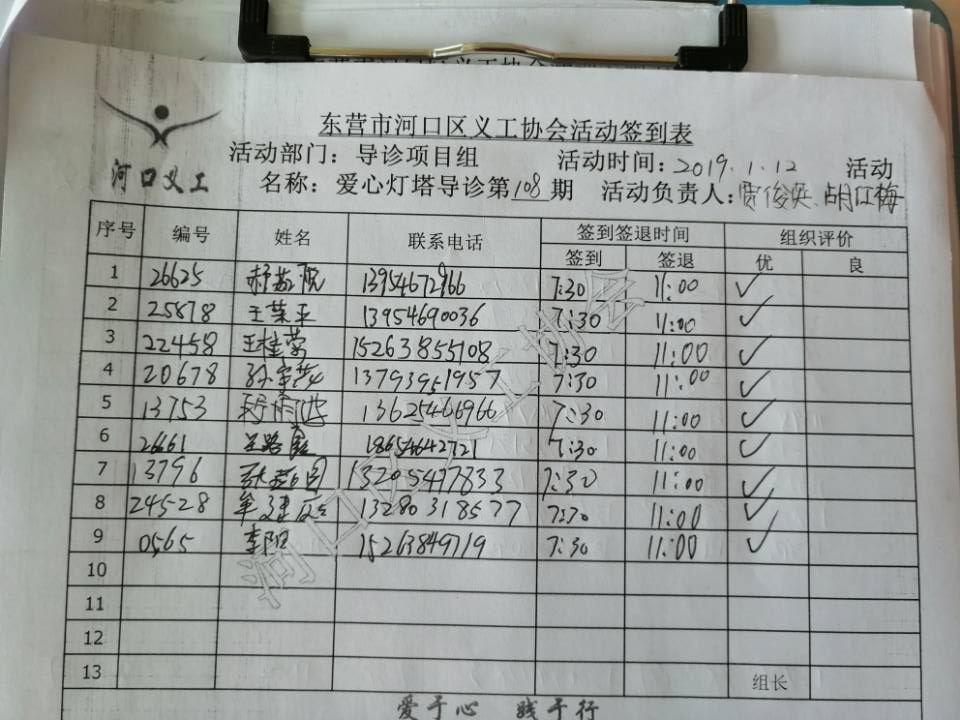 东营市河口区义工协会活动签到表
河口义工
活动部门：导诊项目组 活动时间：2019.1.12 活动
名称：爱心灯塔导诊第108期 活动负责人：贾俊英、胡江梅
序号 编号 姓名 联系电话 签到签退时间 组织评价
签到 签退 优 良
1 26625 13954672966 7:30 11:00 ✓
2 25878 王荣平 13954690036 7:30 11:00 ✓
3 22458 王桂荣 15263855108 7:30 11:00 ✓
4 20678 13793951957 7:30 11:00 ✓
5 13753 13625466966 7:30 11:00 ✓
6 26661 王路霞 18654642721 7:30 11:00 ✓
7 13796 13205497833 7:30 11:00 ✓
8 24528 牟建庆 13280318577 7:30 11:00 ✓
9 0565 李阳 15263849719 7:30 11:00 ✓
10
11
12
13 组长
爱于心 践于行
河口区义工协会